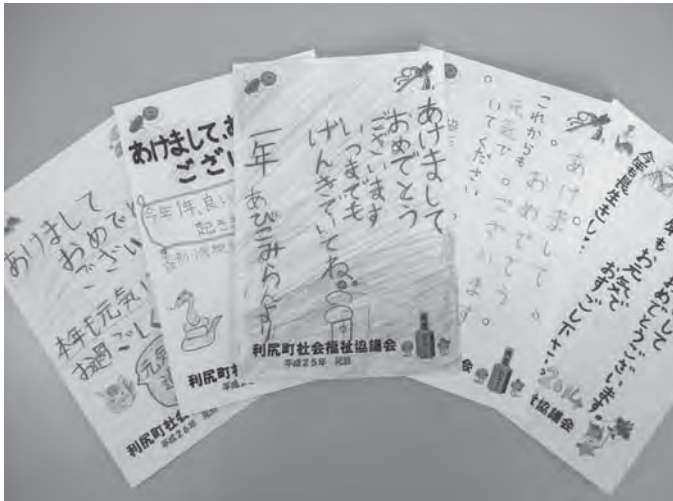 あけまして
おめでと
ござい
本年も元気に
お過ごしく
元気
利尻町社
平成26年
あけまして、お
ござい
今年1年、良い
起き
利尻町社
あけまして
おめでとう
ございます
いつまでも
げんきでいてね。
一年 あびこみらんより
利尻町社会福祉協議会
平成25年 元旦
あけまして。
おめでとう
ございます。
これからも
元気で
いてください。
会
おめでとうございます。
お元気で
おすごし下さい。
2014
協議会